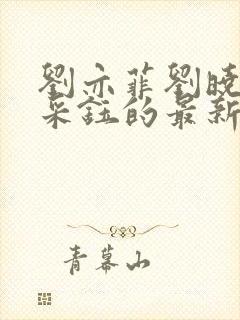 劉亦菲劉曉
采鈺的最新
青幕山